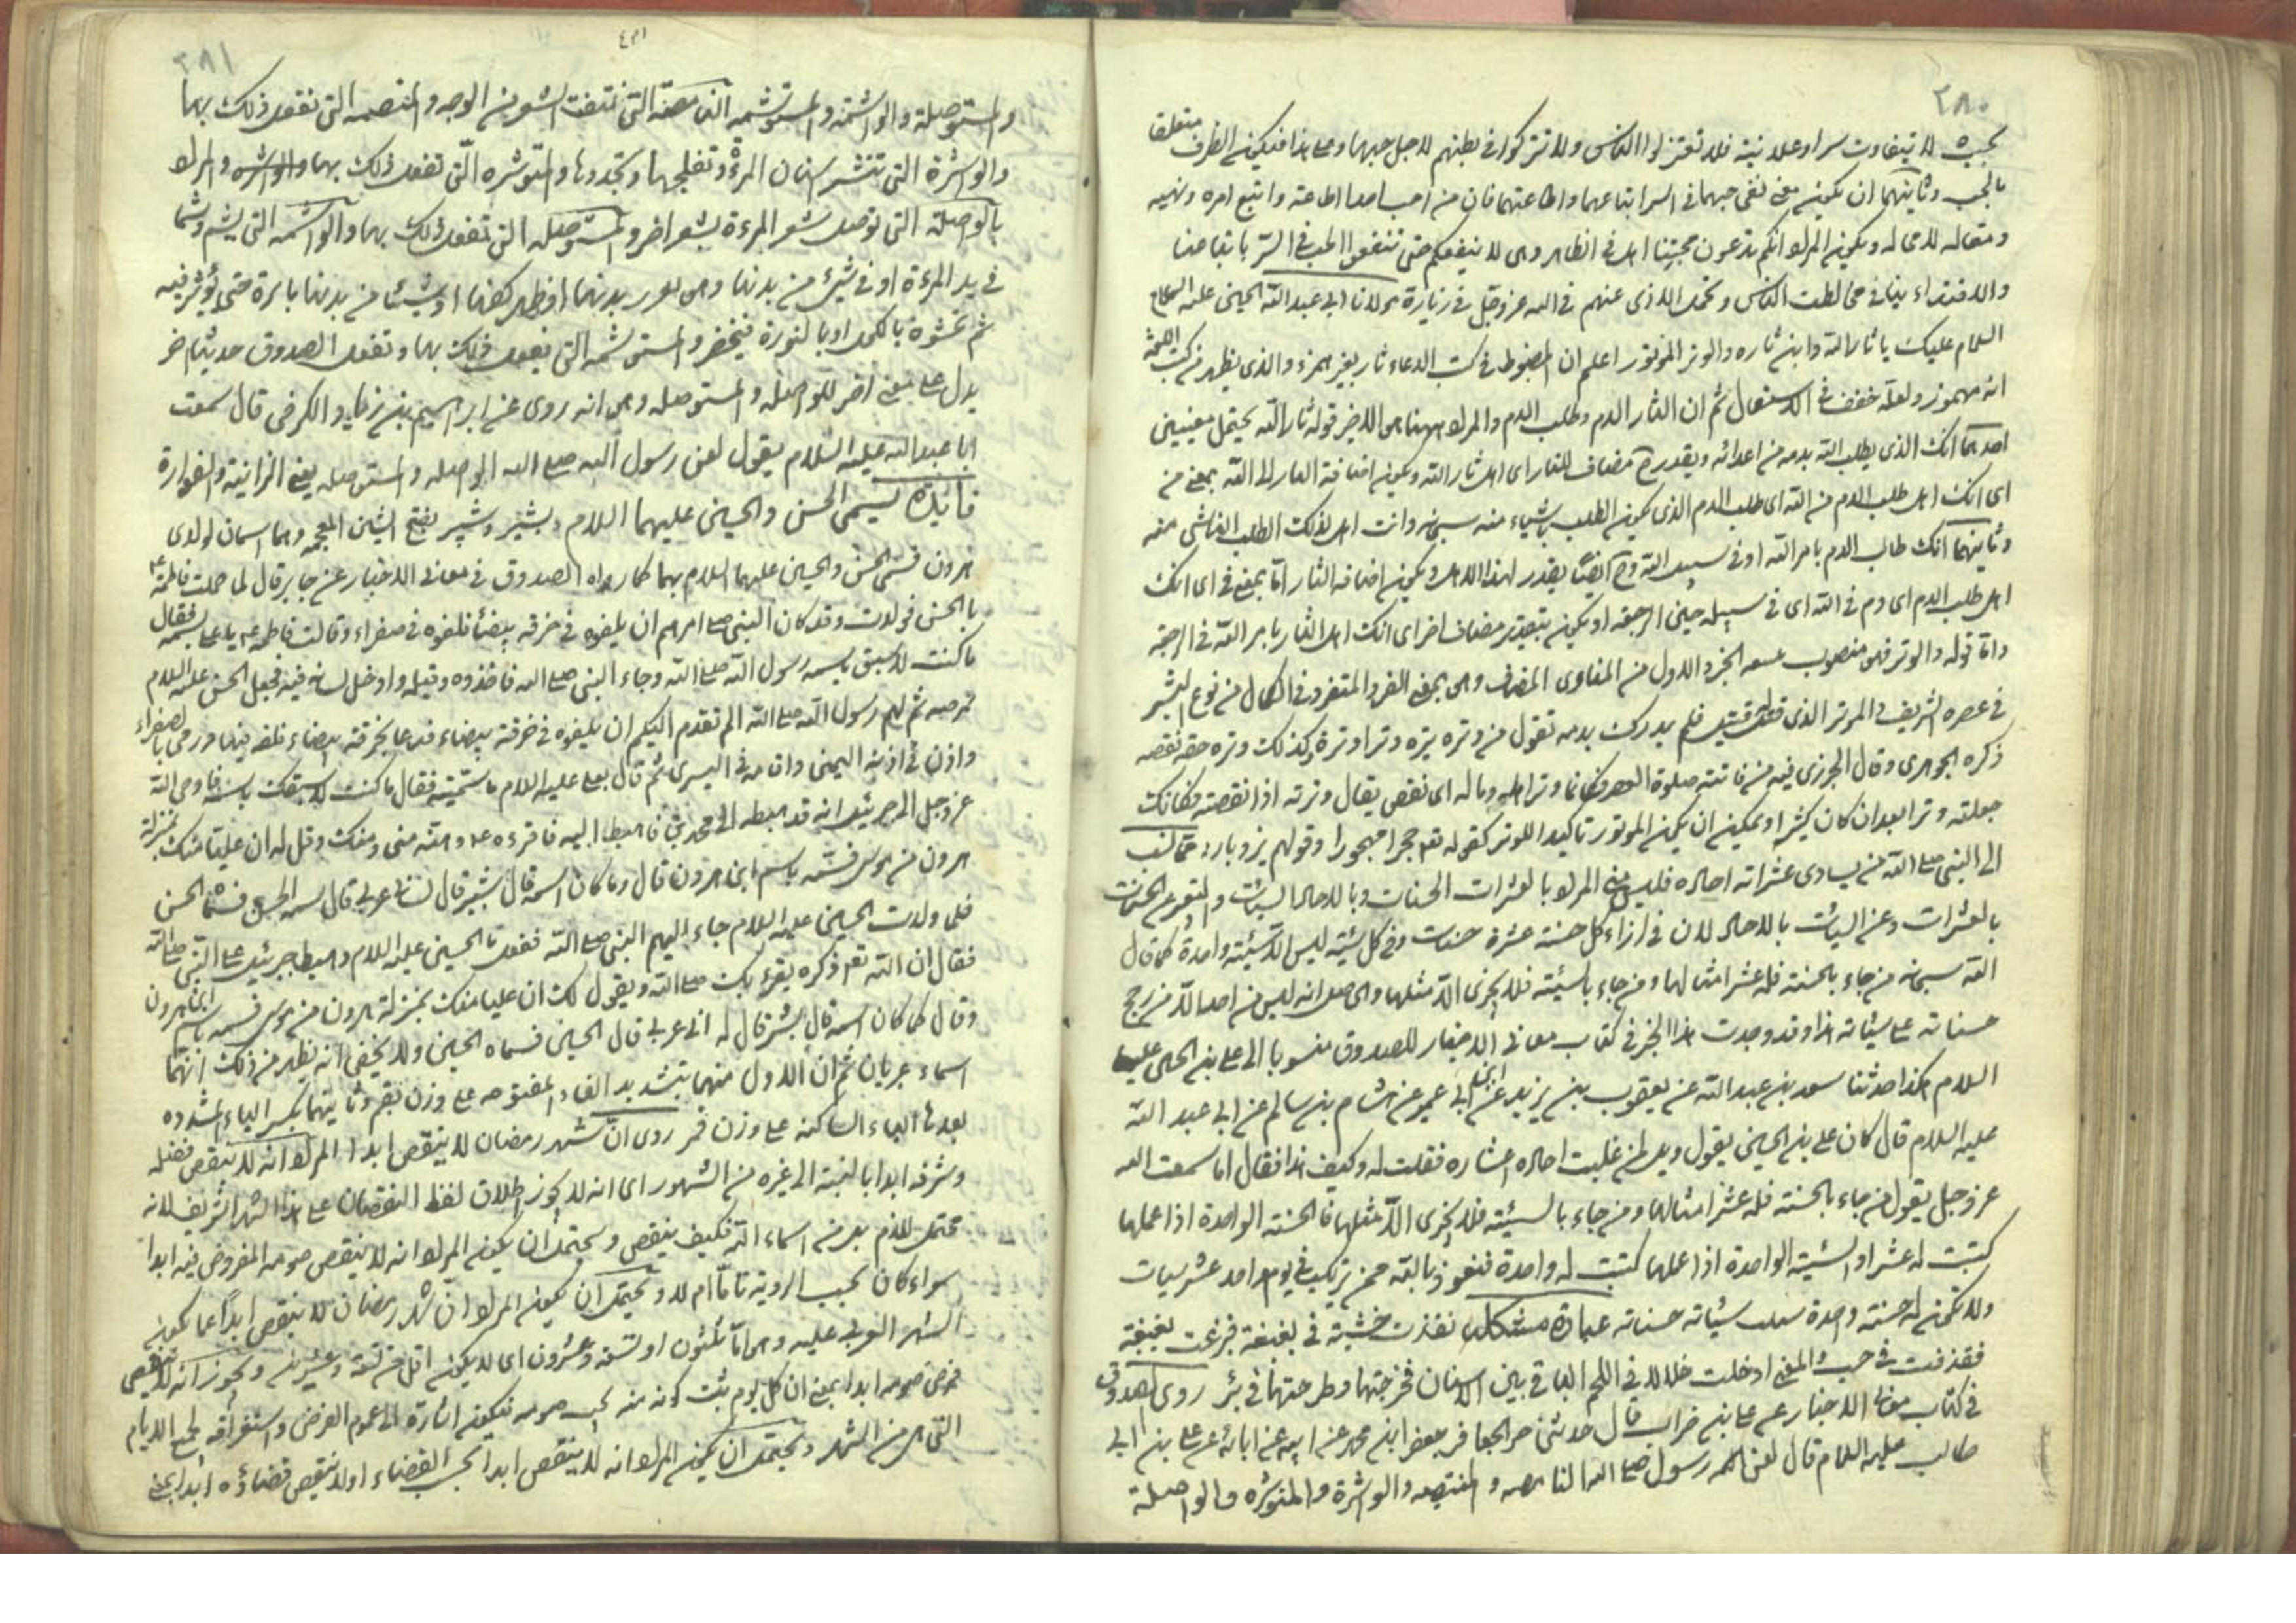 ٢٨٠
بحيث لا يتفاوت سرا وعلانية فلا تعتزلوا الناس ولا تتركوا في بطنهم لاجل حبهما وعلى هذا فيكون الظرف متعلقا
بالحب وثانيهما ان يكون معنى نفي حبهما في السر اتباعهما واطاعتهما فان من احب احدا اطاعته واتبع امره ونهيه
ومقاله لا حاله ويكون المراد انكم تدعون محبتنا اهل في الظاهر وهى لا ينفعكم حتى تنفعوا الحب في السر باتباعنا
والاقتداء بنا في مخالطت الناس وتحمل الاذى عنهم في الله عز وجل في زيارة مولانا ابي عبد الله الحسين عليه السلام
السلام عليك يا ثار الله وابن ثاره والوتر الموتور اعلم ان المضبوط في كتب الدعاء ثار بغير همزة والذى يظهر من كتب اللغة
انه مهموز ولعله خفف في الاستعمال ثم ان الثار الدم وطلب الدم والمراد ههنا هو الاخير قوله ثار الله يحتمل معنيين
احدهما انك الذى يطلب الله بدمه من اعدائه ويقدر ح مضاف للثار اى اهل ثار الله ويكون اضافة الثار الى الله بمعنى من
اى انك اهل طلب الدم من الله اى طلب الدم الذى يكون الطلب ناشياء منه سبحانه وانت اهل لذلك الطلب الناشى منه
وثانيهما انك طالب الدم بامر الله او في سبيل الله وح ايضا يقدر لهذا الاهل ويكون اضافه الثار اما بمعنى في اى انك
اهل طلب الدم اى دم في الله اى في سبيله حين الرجعة او يكون بتقدير مضاف اخر اى انك اهل الثار بامر الله في الرجعة
واما قوله والوتر فهو منصوب الجزء الاول من المنادى المضاف وهى بمعنى الفرد المتفرد في الكمال من نوع البشر
في عصره الشريف في الموتر الذى قتل قتيل فلم يدرك بدمه تقول من وتره يتره وترا وترة وكذلك وتره حقه نقصه
ذكره الجوهرى وقال الجزرى فيه من فاتته صلوة العصر فكانما وتر اهله وماله اى نقص يقال وترته اذا نقصته فكانك
جعلته وترا بعد ان كان كثيرا ويمكن ان يكون الموتور تاكيدا للوتر كقوله تعـ حجرا مهجورا وقولهم بردبارد
الى النبى صلى الله من يساوى عشراته احاده فليس منى المراد بالعشرات الحسنات وبالاحاد السيئات والتعبير عن الحسنات
بالعشرات وعن السيئات بالاحاد لان في ازاء كل حسنة عشرة حسنات وفى كل سيئة ليس الا سيئة واحدة كما قال
الله سبحانه من جاء بالحسنة فله عشر امثالها ومن جاء بالسيئة فلا يجزى الا مثلها والحاصل انه ليس من احد الا من رجح
حسناته على سيئاته هذا وقد وجدت هذا الخبر في كتاب معاني الاخبار للصدوق منسوبا الى علي بن الحسين عليهما
السلام هكذا حدثنا سعد بن عبد الله عن يعقوب بن يزيد عن ابن ابي عمير عن هشام بن سالم عن ابي عبد الله
عليه السلام قال كان علي بن الحسين يقول ويل لمن غلبت احاده اعشاره فقلت له وكيف هذا فقال اما سمعت الله
عز وجل يقول من جاء بالحسنة فله عشر امثالها ومن جاء بالسيئة فلا يجزى الا مثلها فالحسنة الواحدة اذا عملها
كتبت له عشرا والسيئة الواحدة اذا عملها كتبت له واحدة فنعوذ بالله ممن يرتكب في يوم واحد عشر سيات
ولا تكون له حسنة واحدة سيئاته حسناته عبارة مشكلة نفذت خشيبة في بغبغة فبرغت بغبغة
فقذفت في والمعنى ادخلت خلالا في اللحم الباقى بين الاسنان فخرجتها وطرحتها في بئر روى الصدوق
في كتاب معانى الاخبار عن علي بن غراب قال حدثنى خير الجعافر جعفر ابن محمد عن ابيه عن ابائه عن علي بن ابى
طالب عليه السلام قال لعن الله رسول صلى الله النامصه والمنتمصه والواشرة والمتوشره والواصلة
٢٨١
والمستوصلة والواشمة والمستوشمه النامصة التى تنتف الشعر من الوجه والمنتمصه التى تفعل ذلك بها
والواشرة التى تنشر اسنان المرءة وتفلجها وتحددها والمتوشره التى تفعل ذلك بها والمراد
بالواصلة التى توصل شعر المرءة بشعر اخر والمستوصله التى تفعل ذلك بها والواشمه التى يشم وشما
في يد المرءة او في شيئ من بدنها وهى بدنها او ظهر كفها او شيئا من بدنها بابرة حتى يؤثر فيه
ثم تحشوه بالكحل او بالنورة فيخضر والمستوشمه التى يفعل ذلك بها ونقل الصدوق حديثا اخر
يدل على معنى اخر للواصله والمستوصله وهى انه روى عن ابراهيم بن زياد الكرخى قال سمعت
ابا عبد الله عليه السلام يقول لعن رسول الله صلى الله الواصله والمستوصله يعنى الزانية والقوادة
فائدة يسمى الحسن والحسين عليهما السلام بشبر وشبير بفتح الشين المعجمه وهما اسمان لولدى
هرون فسمى الحسن والحسين عليهما السلام بهما كما رواه الصدوق في معانى الاخبار عن جابر قال لما حملت فاطمة ع
بالحسن فولدت وقد كان النبى صلع امرهم ان يلفوه في خرقه بيضاء فلفوه في صفراء وقالت فاطمه ع يا على سمه فقال
ما كنت لاسبق باسمه رسول الله صلى الله وجاء النبى صلى الله فاخذه وقبله وادخل لسانه فيه فجعل الحسن عليه السلام
يمصه ثم لهم رسول الله صلى الله الم تقدم اليكم ان يلفوه في خرقة بيضاء فدعا بخرقة بيضاء فلفه فيها ورمى بالصفراء
واذن في اذنه اليمنى واقامه في اليسرى ثم قال لعلى عليه السلام ما سميته فقال ما كنت لاسبقك باسمه فاوحى الله
عز وجل الى جبرئيل انه قد هبط الى محمد ابن فاهبط اليه فاقرءه ع وهنئه منى ومنك وقل له ان عليا منك بمنزلة
هرون من موسى فسمه باسم ابن هرون قال وما كان اسمه قال شبر قال لسانى عربى قال سمه الحسن فسماه الحسن
فلما ولدت الحسين عليه السلام جاء اليهم النبى صلى الله ففعل بالحسين عليه السلام وهبط جبرئيل على النبى صلى الله
فقال ان الله تعـ ذكره يقرءبك صلى الله ويقول لك ان عليا منك بمنزلة هرون من موسى فسمه باسم ابن هرون
وقال ما كان اسمه قال شبير قال له انى عربى قال الحسين فسماه الحسين ولا يخفى انه يظهر من ذلك انهما
اسماء عربيان ثم ان الاول منهما بتشديد الفاء المفتوحه على وزن بقم وثانيهما بكسر الباء المشدده
بعدها الياء الساكنه على وزن روى ان شهر رمضان لا ينقص ابدا المراد انه لا ينقص فضله
وشرفه ابدا بالنسبة الى غيره من الشهور اى انه لا يجوز اطلاق لفظ النقصان على هذا الشهر الشريف لانه
من اسماء الله فكيف ينقص ويحتمل ان يكون المراد انه لا ينقص صومه المفروض فيه ابدا
سواء كان بحسب الروية تاما ام لا ويحتمل ان يكون المراد ان شهر رمضان لا ينقص ابدا عما يكون
الشهر العربى عليه وهى اما ثلثون او تسعة وعشرون اى لا يكون اقل من تسعة وعشرين ويجوز انه لا ينقص
فرض صومه ابدا بمعنى ان كل يوم ثبت كونه منه يجب صومه فيكون اشارة الى عموم الفرض واستغراقه لجميع الايام
التى هى من الشهر ويحتمل ان يكون المراد انه لا ينقص ابدا بحسب القضاء اولا ينقص قضاؤه ابدا بمعنى